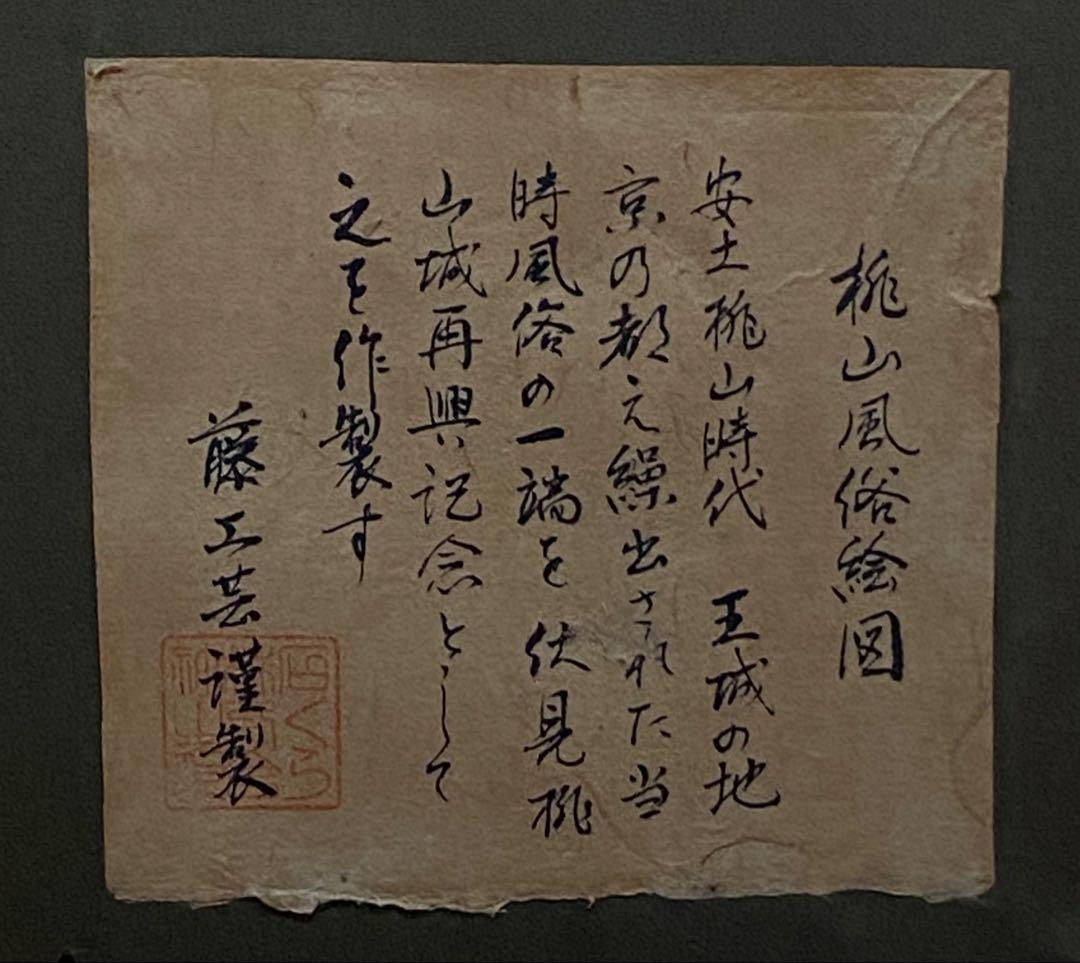 桃山風俗絵図
安土桃山時代 王城の地
京の都え繰出された当
時風俗の一端を伏見桃
山城再興記念として
之を作製す
藤工芸謹製